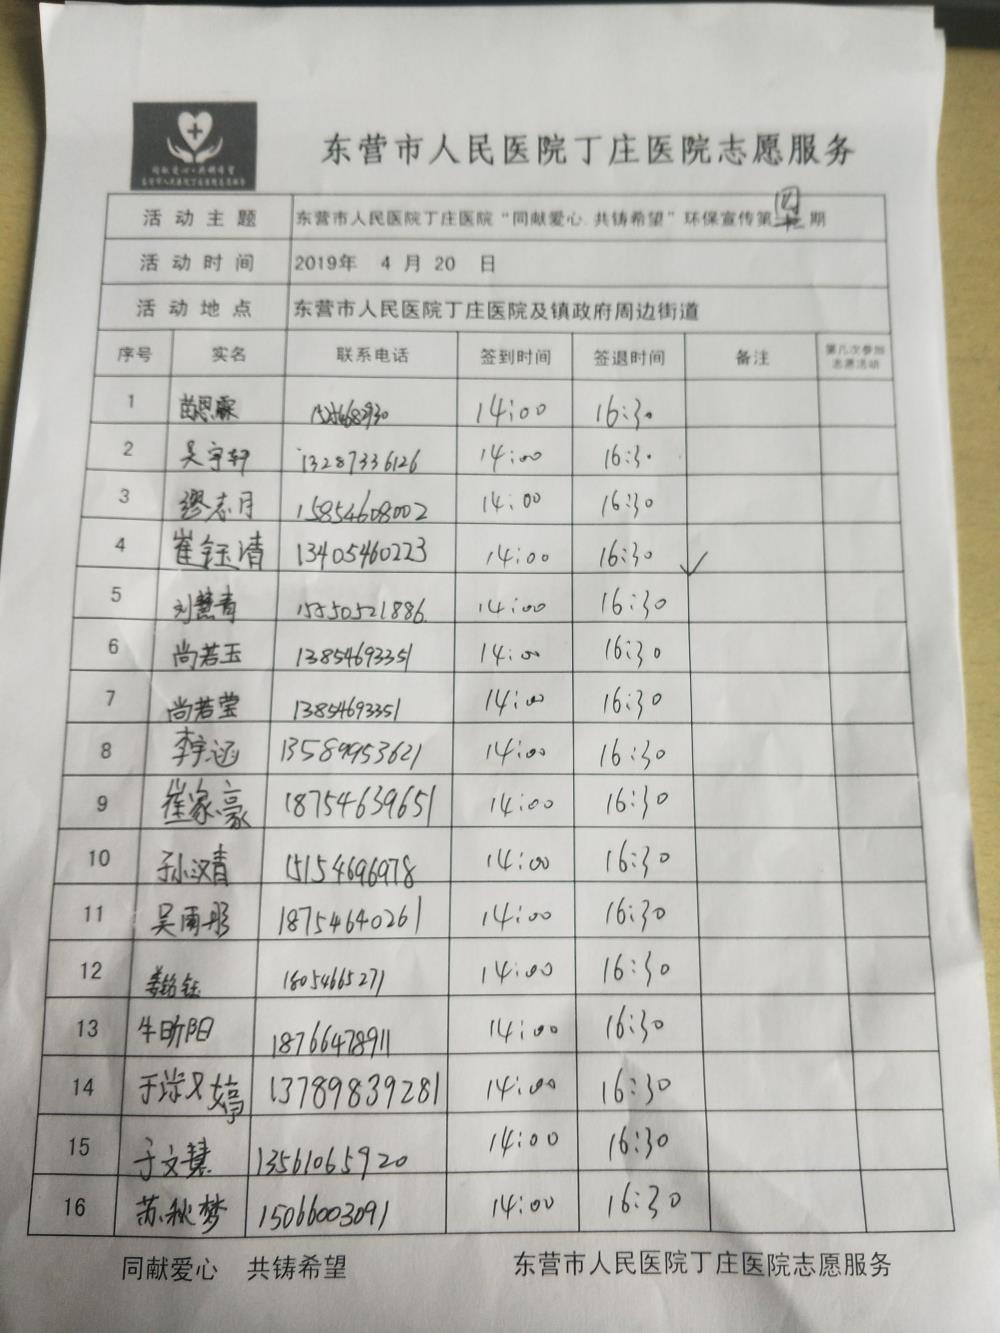 同献爱心·共铸希望
东营市人民医院丁庄医院志愿服务
东营市人民医院丁庄医院志愿服务
活动主题 东营市人民医院丁庄医院“同献爱心.共铸希望”环保宣传第四期
活动时间 2019年 4 月 20 日
活动地点 东营市人民医院丁庄医院及镇政府周边街道
序号 实名 联系电话 签到时间 签退时间 备注 第几次参加志愿活动
1 苗思霖 14:00 16:30
2 吴宇轩 13287336126 14:00 16:30
3 缪志月 15854608002 14:00 16:30
4 崔钰清 13405460223 14:00 16:30 ✓
5 刘慧青 15550521886 14:00 16:30
6 尚若玉 13854693351 14:00 16:30
7 尚若莹 13854693351 14:00 16:30
8 李宇涵 13589953621 14:00 16:30
9 崔家豪 18754639651 14:00 16:30
10 于孙汉青 15154696978 14:00 16:30
11 吴雨彤 18754640261 14:00 16:30
12 18054665271 14:00 16:30
13 牛昕阳 18766478911 14:00 16:30
14 13789839281 14:00 16:30
15 于文慧 13561065920 14:00 16:30
16 苏秋梦 15066003091 14:00 16:30
同献爱心 共铸希望 东营市人民医院丁庄医院志愿服务